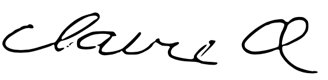 Claire A